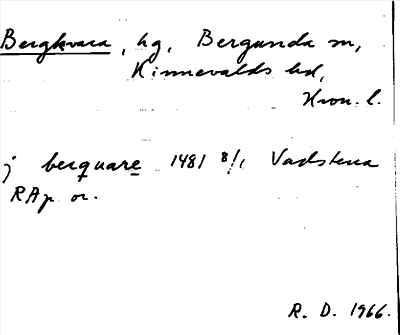 Bergkvara, hg, Bergunda sn,
Kinnevalds hd,
Kron. l.
j berquare 1481 8/1 Vadstena
RAp or.
R. D. 1966.